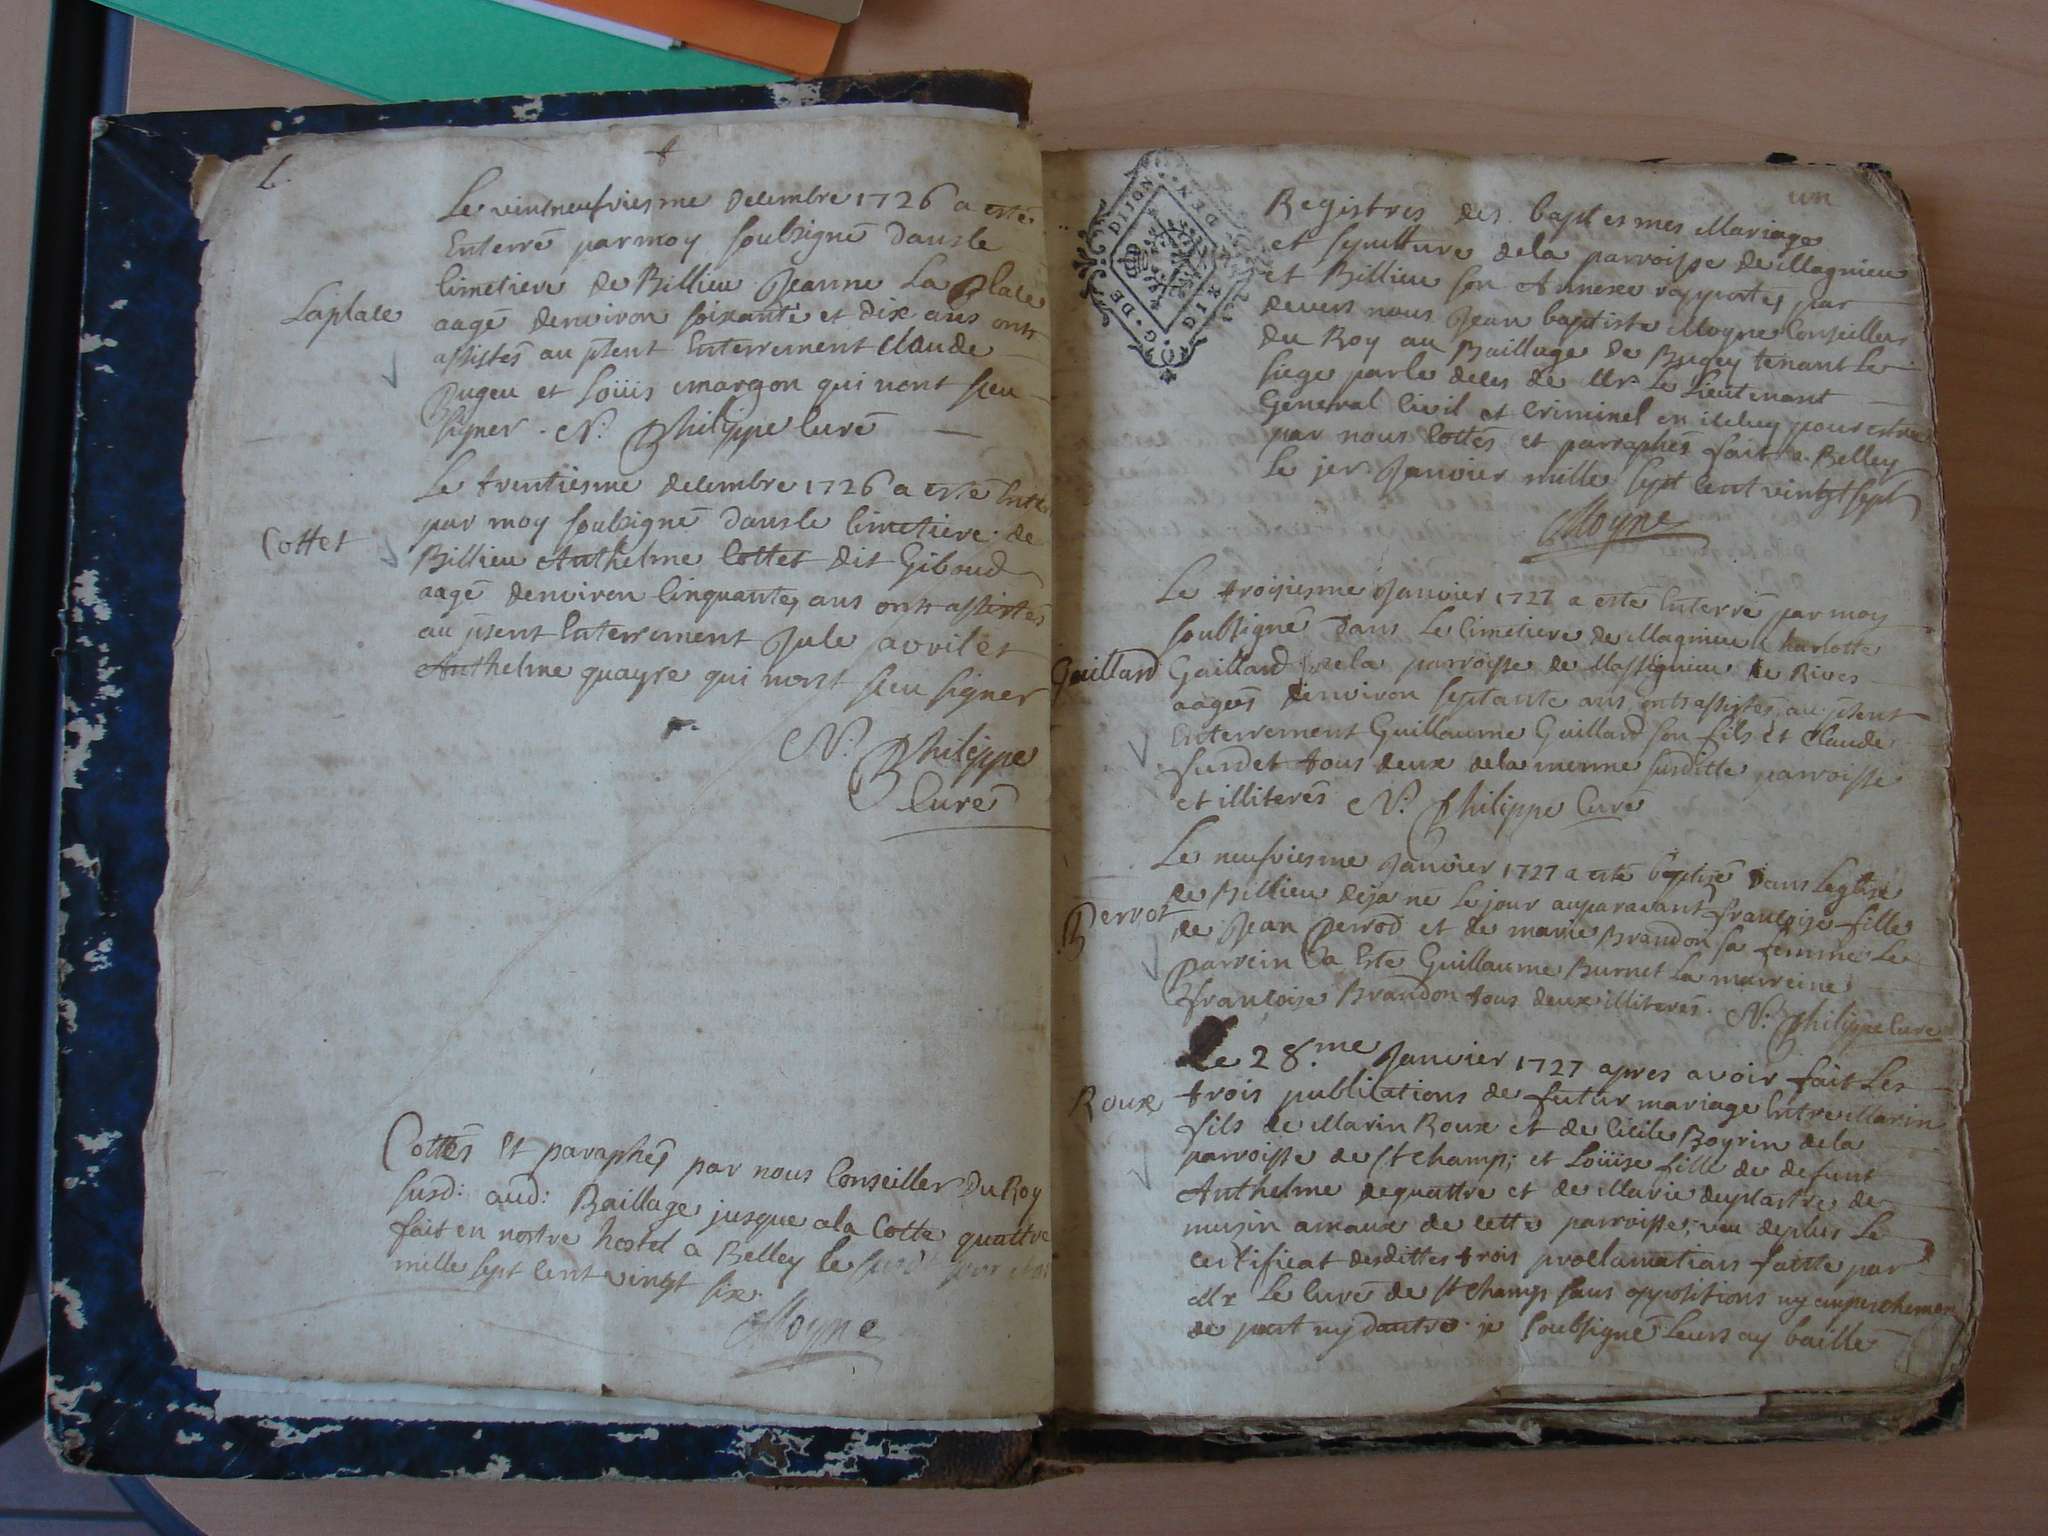 Le vintneufviesme decembre 1726 a esté
Enterré par moy soubsigné dans le
Cimetiere de Billieu Jeanne La place
Laplace
aagé denviron soixante et dix ans ont
assistés au psent Enterrement Claude
Dugeu et Loüis margon qui nont sceu
signer. N. Philippe Curé
Le trentiesme decembre 1726 a esté Enter
par moy soubsigné dans le Cimetiere de
Cottet
Billieu Anthelme Cottet dit Giboud
aagé denviron Cinquante ans ont assistés
au psent Enterrement Jule avril et
Anthelme quayre qui nont sceu signer
N. Philippe
Curé
Cottés Et paraphés par nous Conseiller Du Roy
susd: aud: Baillage jusque a la Cotte quattre
fait en nostre hostel a Belley le
mille sept Cent vingt six
Moyne
un
G. DE DIJON
Registres des baptesmes Mariage
et sepulture de la parroisse de Magnieu
et Billieu son Annexe rapportés par
devers nous Jean baptiste Moyne Conseiller
du Roy au Baillage de Bugey tenant Le
siege par le deces de Mr Le Lieutenant
General Civil et Criminel en iceluy pour estre
par nous Cottés et parraphés fait a Belley
Le jer Janvier mille sept Cent vingt sept
Moyne
Le troisiesme Janvier 1727 a esté Enterré par moy
soubsigné Dans Le Cimetiere de Magnieu Charlotte
Gaillard
Gaillard de la parroisse de Massignieu de Rives
aagées denviron septante ans, ont assistés au psent
Enterrement Guillaume Guillard son fils et Claude
surdet tous deux de la meme susditte parroisse
et illiterés N. Philippe Curé
Le neufviesme Janvier 1727 a esté baptisé dans Leglise
de Billieu deja né Le jour auparavant françoise fille
Perrot
de Jean Perrod et de marie Brandon sa femme Le
parrein a Esté Guillaume Burnet La marreine
françoise Brandon tous deux illiterés. N. Philippe Curé
Le 28.me Janvier 1727 apres avoir fait Les
Roux
trois publications de futur mariage Entre Marin
fils de Marin Roux et de Cecile Boyrin de la
parroisse de St Champ; et Loüise fille de defunt
Anthelme dequattre et de Marie deplastre de
musin amaux de cette parroisse; veu deplus Le
certificat desdittes trois proclamations faitte par
Mr Le Curé de St Champ sans oppositions ny empeschemen
de part ny dautre je soubsigné Leurs ay baillé